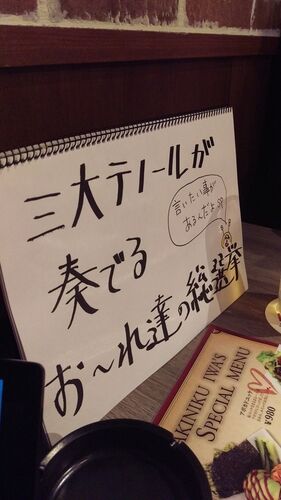 三大テノールが
言いたい事が
あるんだよ!!
奏でる
お〜れ達の総選挙
YAKINIKU IWA'S
SPECIAL MENU
アボカドユッケ
¥980